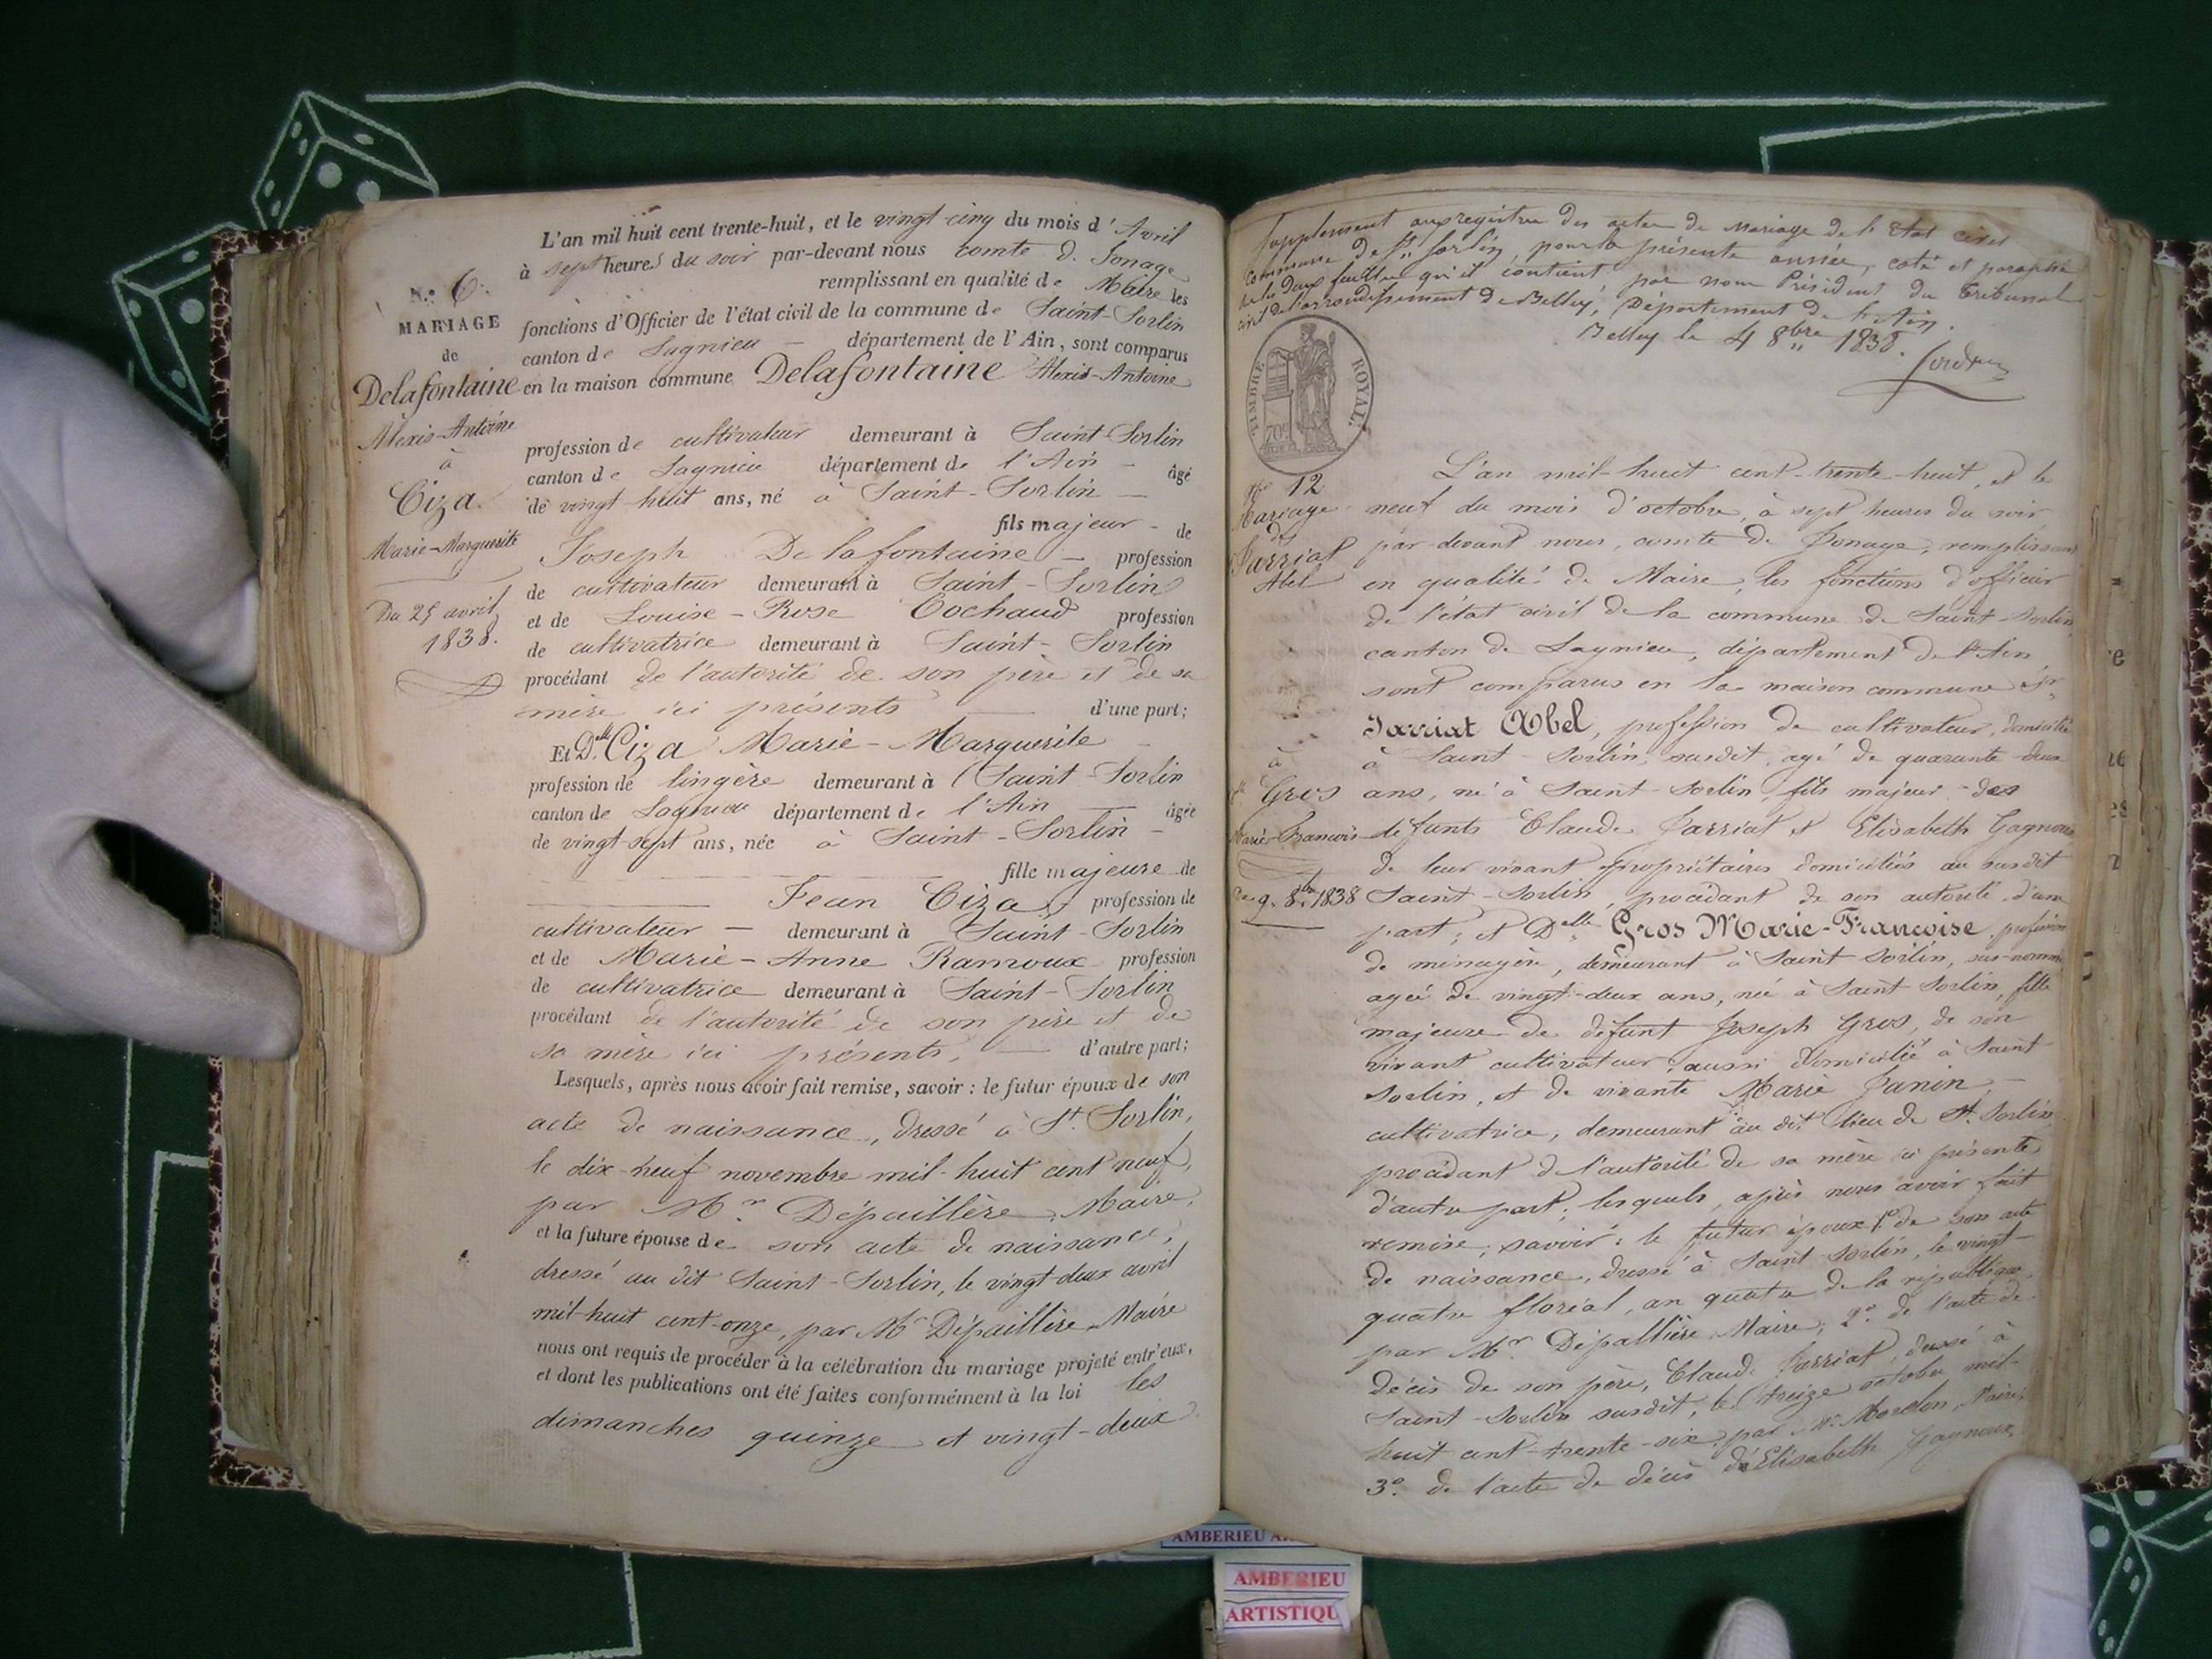 L'an mil huit cent trente-huit, et le vingt-cinq du mois d'Avril
à sept heures du soir par-devant nous comte de Jonage
remplissant en qualité de Maire les
fonctions d'Officier de l'état civil de la commune de Saint-Sorlin
canton de Lagnieu — département de l'Ain, sont comparus
en la maison commune Delafontaine Alexis-Antoine
profession de cultivateur demeurant à Saint-Sorlin
canton de Lagnieu département de l'Ain - âgé
de vingt-huit ans, né à Saint-Sorlin —
fils majeur - de
Joseph Delafontaine — profession
de cultivateur demeurant à Saint-Sorlin
et de Louise-Rose Cochaud profession
de cultivatrice demeurant à Saint-Sorlin
procédant de l'autorité de son père et de sa
mère ici présents — d'une part;
Et Dlle Ciza Marie-Marguerite
profession de lingère demeurant à Saint-Sorlin
canton de Lagnieu département de l'Ain — âgée
de vingt-sept ans, née à Saint-Sorlin -
fille majeure de
Jean Ciza, profession de
cultivateur — demeurant à Saint-Sorlin
et de Marie-Anne Ramoux profession
de cultivatrice demeurant à Saint-Sorlin
procédant de l'autorité de son père et de
sa mère ici présents, — d'autre part;
Lesquels, après nous avoir fait remise, savoir : le futur époux de son
acte de naissance, dressé à St. Sorlin,
le dix-neuf novembre mil-huit cent neuf,
par Mr. Dépaillère, Maire,
et la future épouse de son acte de naissance,
dressé au dit Saint-Sorlin, le vingt-deux avril
mil-huit cent-onze, par Mr Dépaillère, Maire
nous ont requis de procéder à la célébration du mariage projeté entr'eux,
et dont les publications ont été faites conformément à la loi les
dimanches quinze et vingt-deux
N.o 6.
MARIAGE
de
Delafontaine
Alexis-Antoine
à
Ciza.
Marie-Marguerite
Du 25 avril
1838.
Supplement aux registres des actes de Mariage de l'Etat civil
commune de St Sorlin, pour la présente année, coté et paraphé
les deux feuilles qu'il contient par nous Président du Tribunal
civil de l'arrondissement de Belley, Département de l'Ain.
Belley le 4 8bre 1838.
TIMBRE ROYAL
70c
No 12
Mariage
de
Jarriat
Abel
à
Dlle Gros
Marie-Francoise
Du 9. 8bre 1838
L'an mil-huit cent-trente-huit, et le
neuf du mois d'octobre, à sept heures du soir
par-devant nous, comte de Jonage, remplissant
en qualité de Maire, les fonctions d'officier
de l'état civil de la commune de Saint-Sorlin
canton de Lagnieu, département de l'Ain
sont comparus en la maison commune
Jarriat Abel, profession de cultivateur, domicilié
à Saint-Sorlin, susdit, agé de quarante-deux
ans, né à Saint-Sorlin, fils majeur des
défunts Claude Jarriat et Elisabeth Gagnoux
de leur vivant propriétaires domiciliés au susdit
Saint-Sorlin, procédant de son autorité d'une
part; et Delle Gros Marie-Francoise, profession
de ménagère, demeurant à Saint Sorlin, sus-nommé
agée de vingt-deux ans, née à Saint Sorlin, fille
majeure de défunt Joseph Gros, de son
vivant cultivateur, aussi domicilié à Saint-
Sorlin, et de vivante Marie Janin, —
cultivatrice, demeurant au dit lieu de St. Sorlin
procédant de l'autorité de sa mère ici présente,
d'autre part; lesquels, après nous avoir fait
remise, savoir : le futur époux 1o de son acte
de naissance, dressé à Saint-Sorlin, le vingt-
quatre floréal, an quatre de la république,
par Mr. Dépallière, Maire; 2o. de l'acte de
décès de son père, Claude Jarriat, dressé à
Saint-Sorlin susdit, le treize octobre mil-
huit cent-trente-six, par Mr. Morelon, Maire;
3o. de l'acte de décès d'Elisabeth Gagnoux,
AMBERIEU
AMBERIEU
ARTISTIQU